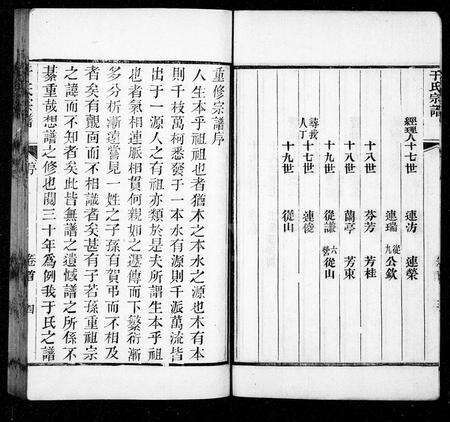 于氏宗譜
經理人十七世　連汸　連榮
連瑞　從九公欽
十八世　芬芳　芳桂
十八世　蘭亭　芳東
十九世　從謙　從山
尋我人丁十七世　連俊
十九世　從山
重修宗譜序
人生本乎祖祖也者猶木之本水之源也木有本
則千枝萬柯悉發于一本水有源則千派萬流皆
出于一源人之有祖亦類於是夫所謂生本乎祖
也者氣相連脈相貫何親如之遞傳而下蘩衍漸
多分析漸遠嘗見一姓之子孫有賀弔而不相及
者矣有覿面而不相識者矣甚有子若孫重祖宗
之諱而不知者矣此皆無譜之遺憾譜之所係不
綦重哉想譜之修也閱三十年為例我于氏之譜
序　卷首　四